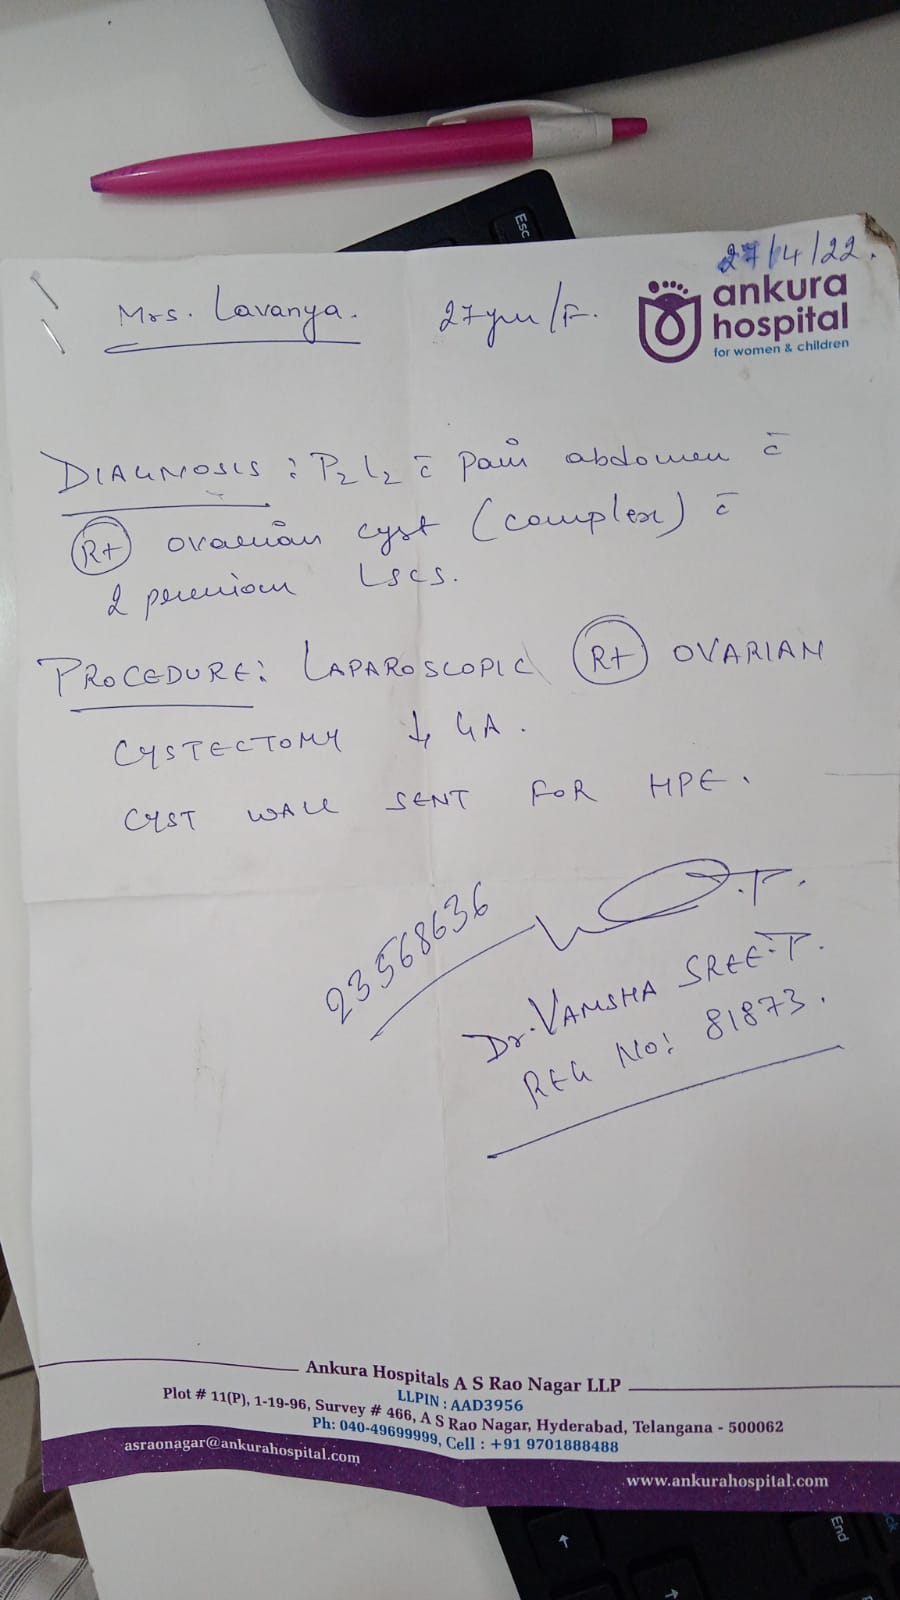 27/4/22.
Mrs. Lavanya. 27yrs/F.
ankura
hospital
for women & children
DIAGNOSIS: P2L2 c̄ pain abdomen c̄
Rt ovarian cyst (complex) c̄
2 previous LSCS.
PROCEDURE: LAPAROSCOPIC Rt OVARIAN
CYSTECTOMY ↓ GA.
CYST WALL SENT FOR HPE.
23568636
Dr. VAMSHA SREE.T.
REG NO: 81873.
Ankura Hospitals A S Rao Nagar LLP
LLPIN : AAD3956
Plot # 11(P), 1-19-96, Survey # 466, A S Rao Nagar, Hyderabad, Telangana - 500062
Ph: 040-49699999, Cell : +91 9701888488
asraonagar@ankurahospital.com
www.ankurahospital.com
Esc
End